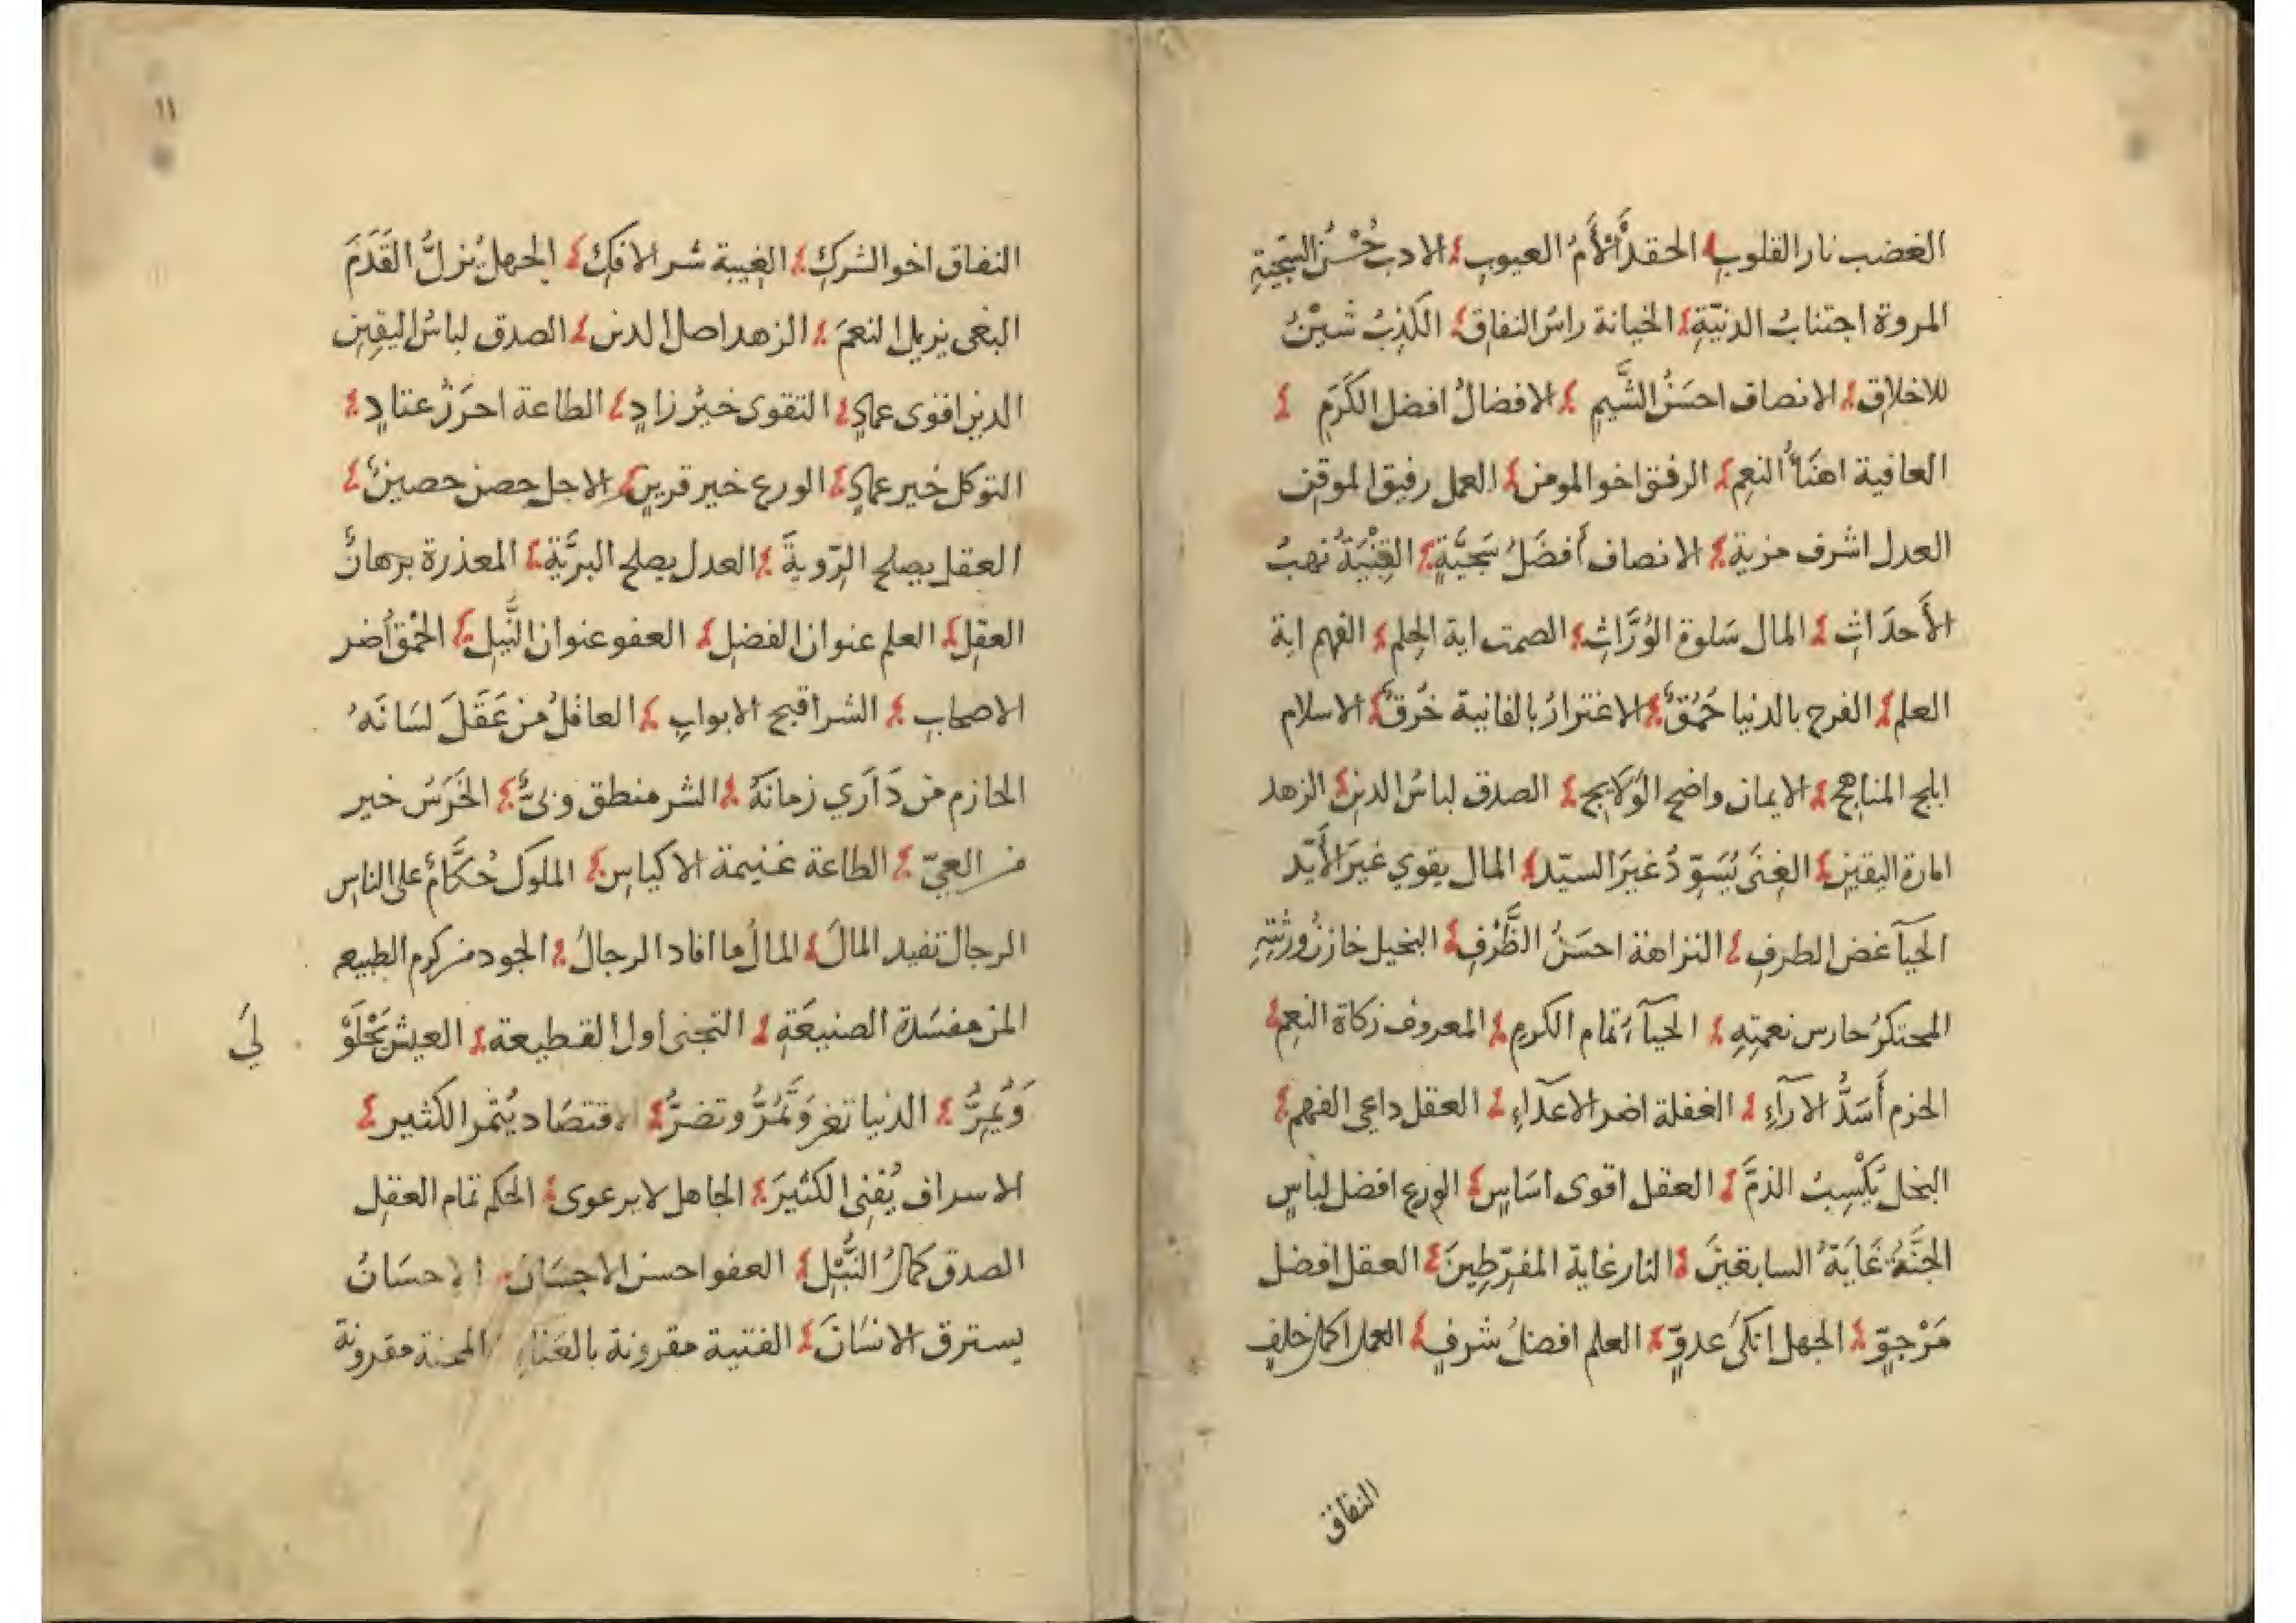 الغضب نار القلوب الحقد أَلْأَمُ العيوب الادب حُسْنُ السَّجِيَّةِ
المروة اجتنابُ الدنيّةِ الخيانة راسُ النفاق الكَذِبُ شَيْنُ
للاخلاق الانصاف احسَنُ الشَّيمِ الافضالُ افضل الكَرَمِ
العافية اهنَأُ النعِم الرفق اخو المومن العمل رفيق الموقن
العدل اشرف مزية الانصاف أفضَلُ سَجَيَّةٍ القِنْيَةُ نهبُ
الأَحدَاثِ المال سَلوة الوُرَّاثِ الصمت اية الحِلم الفهم اية
العلم الفرح بالدنيا حُمُقٌ الاغترارُ بالفانية خُرقٌ الاسلام
ابلج المناهج الايمان واضح الوَلَايج الصدق لباسُ الدين الزهد
امارة اليقين الغِنَى يُسَوِّدُ غيَرَ السيّد المال يقوي غيرَ الأَيّد
الحيآ غض الطرفِ النزاهة احسَنُ الظَّرْفِ البخيل خازنُ ورثتِهِ
المحتكرُ حارس نعمتِهِ الحيآءُ تمام الكرمِ المعروف زكاة النعِم
الحزم أَسَدُّ الآرآءِ الغفلة اضر الاعدآءِ العقل داعي الفهم
البخل يَكْسِبُ الذمَّ العقل اقوى اسَاسٍ الورع افضل لباسٍ
الجنَّةُ غَايَةُ السابقينَ النار غاية المفرّطِينَ العقل افضل
مَرْجوٍّ الجهل انكَى عدوٍّ العلم افضلُ شرفٍ العمل اكمل خلفٍ
النفاق
١١
النفاق اخو الشركِ الغيبة شر الافكِ الجهل يُزلُّ القَدَمَ
البغى يزيل النعمَ الزهد اصل الدين الصدق لباسُ اليقِينِ
الدين اقوى عمادٍ التقوى خيرُ زادٍ الطاعة احرَزُ عتادٍ
التوكل خير عمادٍ الورع خير قرينٍ الاجل حصن حصينٌ
العقل يصلح الرّويةَ العدل يصلح البريَّةَ المعذرة برهانُ
العقلِ العلم عنوان الفضلِ العفو عنوان النَّبلِ الحُمْق أضر
الاصحابِ الشر اقبح الابوابِ العاقلُ من عَقَلَ لسَانَهُ
الحازم من دَآرَي زمانَهُ الشر منطق وبىٌّ الخَرَسُ خير
من العيّ الطاعة غنيمة الاكياسِ الملوك حُكَّامٌ على الناسِ
الرجال تفيد المالَ المالُ ما افاد الرجالُ الجود من كرم الطبيعه
المن مفسَدة الصنيعَةِ التجنى اول القطيعة العيش يَحْلَوْ
وَيُمِرُّ الدنيا تغر وَتَمُرُّ وتضرُّ الاقتصَاد يُثمر الكثير
لِيَ
الاسراف يُفنى الكثيرَ الجاهل لا يرعوى الحكم تمام العقلِ
الصدق كمالُ النُّبْلِ العفو احسن الاحسَان الاحسَانُ
يسترق الانسَانَ الفتية مقرونة بالعَنَاءِ المحنة مقرونة